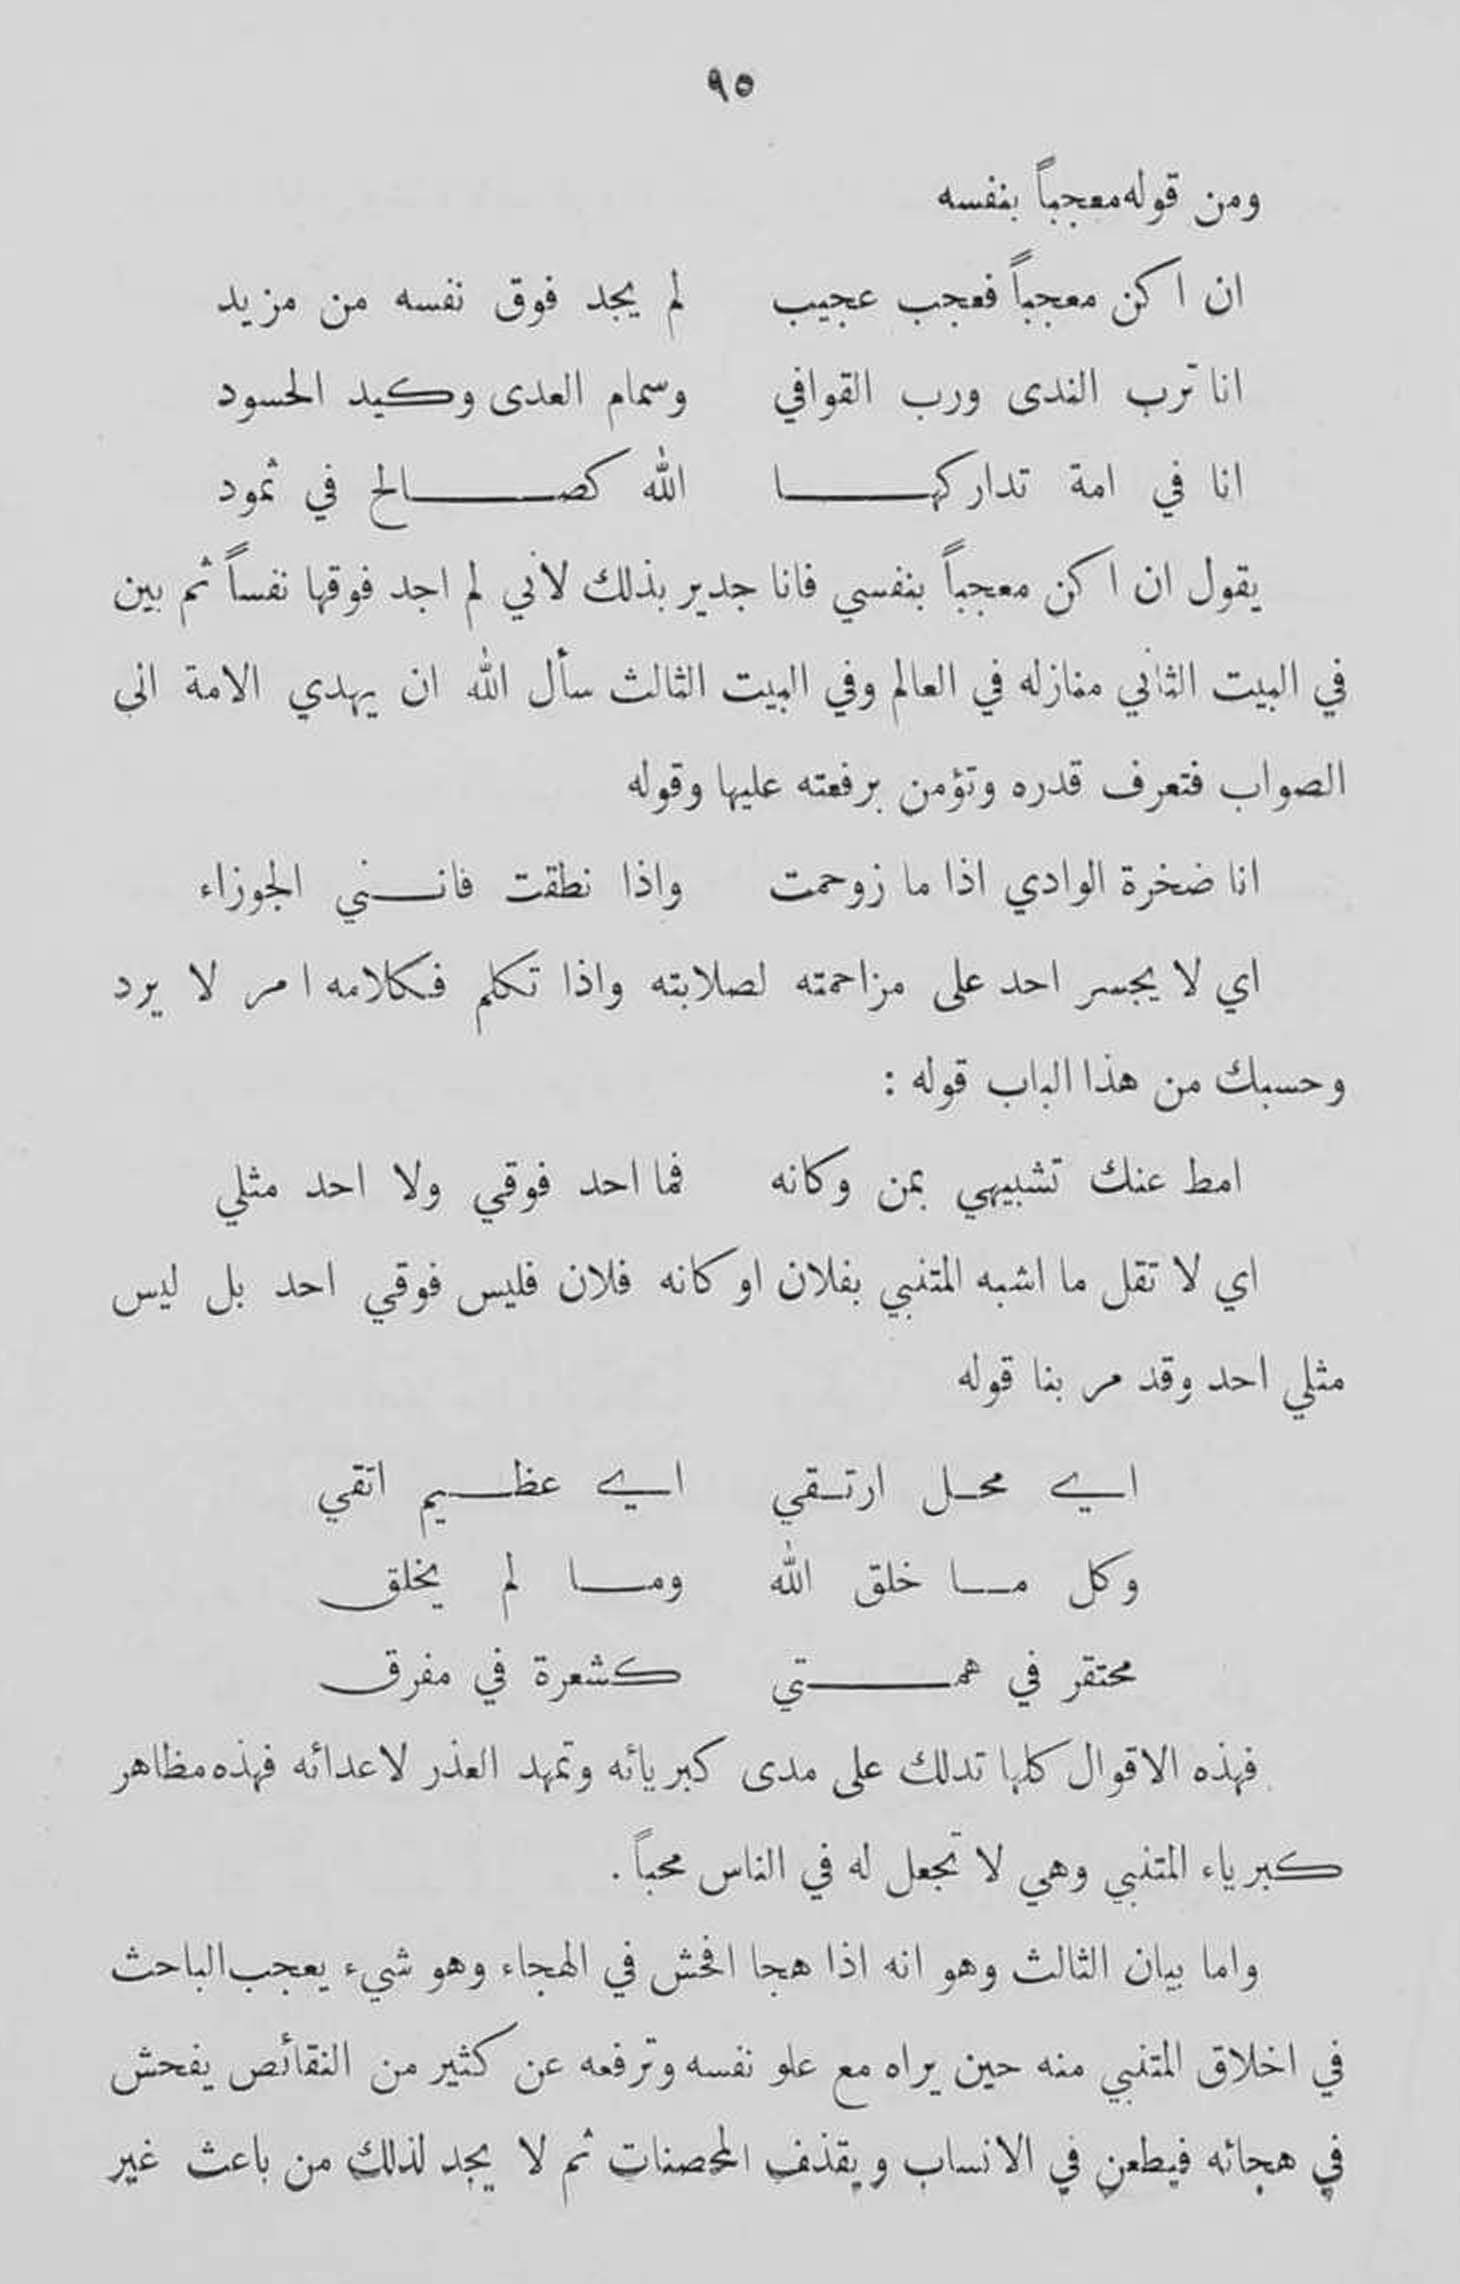 ٩٥
ومن قوله معجباً بنفسه
ان اكن معجباً فعجب عجيب لم يجد فوق نفسه من مزيد
انا ترب الندى ورب القوافي وسمام العدى وكيد الحسود
انا في امة تداركهـا الله كصـالح في ثمود
يقول ان اكن معجباً بنفسي فانا جدير بذلك لاني لم اجد فوقها نفساً ثم بين
في البيت الثاني منازله في العالم وفي البيت الثالث سأل الله ان يهدي الامة الى
الصواب فتعرف قدره وتؤمن برفعته عليها وقوله
انا ضخرة الوادي اذا ما زوحمت واذا نطقت فانـني الجوزاء
اي لا يجسر احد على مزاحمته لصلابته واذا تكلم فكلامه امر لا يرد
وحسبك من هذا الباب قوله :
امط عنك تشبيهي بمن وكانه فما احد فوقي ولا احد مثلي
اي لا تقل ما اشبه المتنبي بفلان او كانه فلان فليس فوقي احد بل ليس
مثلي احد وقد مر بنا قوله
اي محـل ارتـقي اي عظـيم اتقي
وكل مـا خلق الله ومـا لم يخلق
محتقر في همـتي كشعرة في مفرق
فهذه الاقوال كلها تدلك على مدى كبريائه وتمهد العذر لاعدائه فهذه مظاهر
كبرياء المتنبي وهي لا تجعل له في الناس محباً .
واما بيان الثالث وهو انه اذا هجا افحش في الهجاء وهو شيء يعجب الباحث
في اخلاق المتنبي منه حين يراه مع علو نفسه وترفعه عن كثير من النقائص يفحش
في هجائه فيطعن في الانساب ويقذف المحصنات ثم لا يجد لذلك من باعث غير